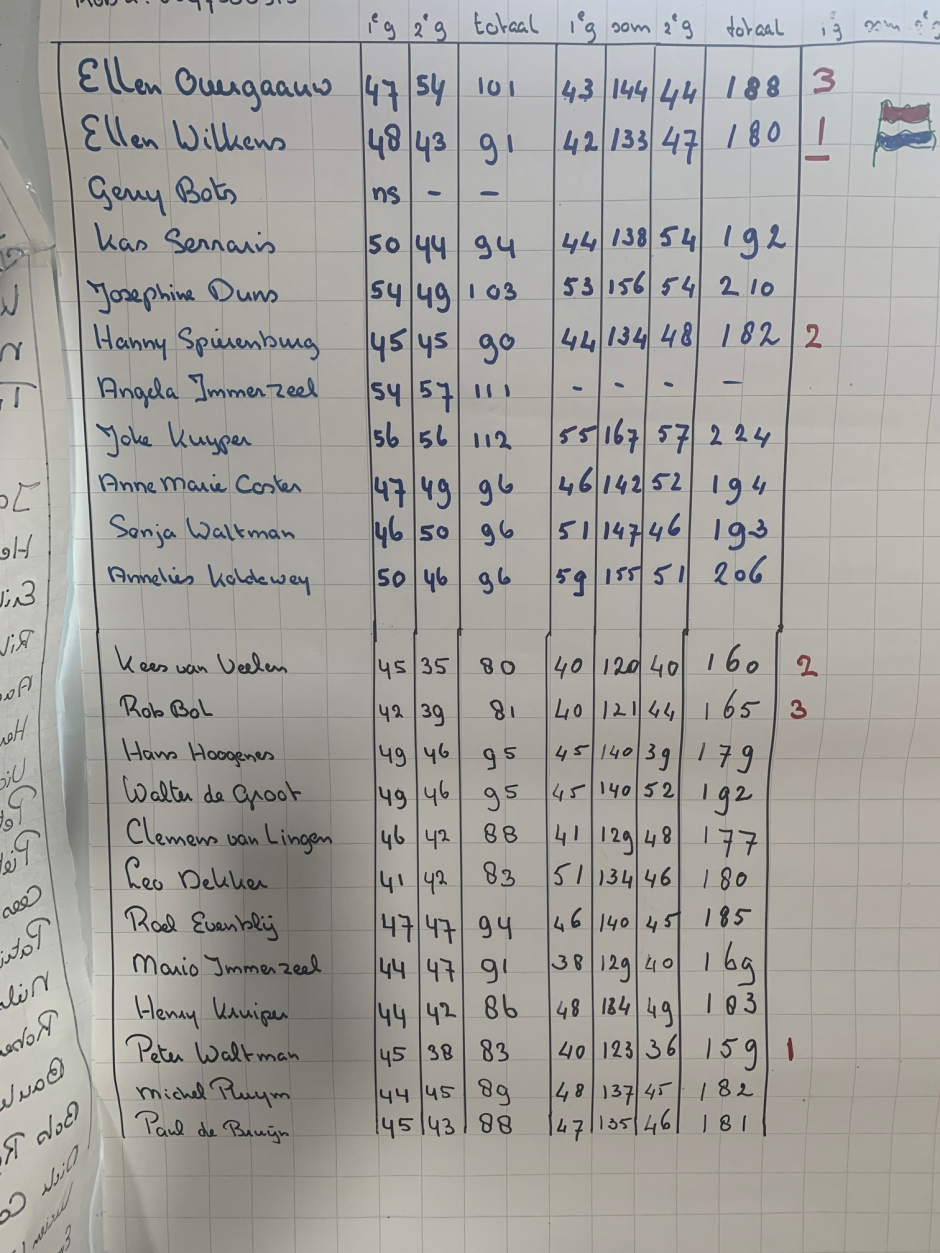 1eg 2eg totaal 1eg som 2eg totaal 1g som 2eg
Ellen Ouwgaauw 47 54 101 43 144 44 188 3
Ellen Wilkens 48 43 91 42 133 47 180 1
Gerry Bots ns - -
Kas Sernais 50 44 94 44 138 54 192
Josephine Duns 54 49 103 53 156 54 210
Hanny Spierenburg 45 45 90 44 134 48 182 2
Angela Immerzeel 54 57 111 - - - -
Joke Kuyper 56 56 112 55 167 57 224
Anne Marie Coster 47 49 96 46 142 52 194
Sonja Waltman 46 50 96 51 147 46 193
Annelies Koldewey 50 46 96 59 155 51 206
Kees van Veelen 45 35 80 40 120 40 160 2
Rob Bol 42 39 81 40 121 44 165 3
Hans Hoogenes 49 46 95 45 140 39 179
Walter de Groot 49 46 95 45 140 52 192
Clemens van Lingen 46 42 88 41 129 48 177
Leo Dekker 41 42 83 51 134 46 180
Roel Evenblij 47 47 94 46 140 45 185
Mario Immerzeel 44 47 91 38 129 40 169
Henry Kruiper 44 42 86 48 134 49 183
Peter Waltman 45 38 83 40 123 36 159 1
Michel Pluym 44 45 89 48 137 45 182
Paul de Bruijn 45 43 88 47 135 46 181